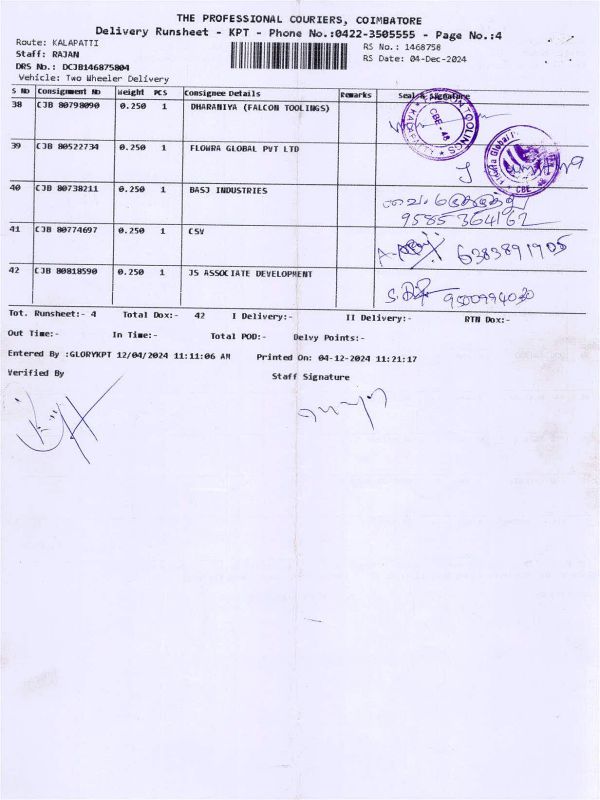 THE PROFESSIONAL COURIERS, COIMBATORE
Delivery Runsheet - KPT - Phone No.:0422-3505555 - Page No.:4
Route: KALAPATTI
RS No.: 1468758
Staff: RAJAN
RS Date: 04-Dec-2024
DRS No.: DCJB146875804
Vehicle: Two Wheeler Delivery
S No Consignment No Weight PCS Consignee Details Remarks Seal & Signature
38 CJB 80798090 0.250 1 DHARANIYA (FALCON TOOLINGS)
FALCON TOOLINGS
CBE - 48
39 CJB 80522734 0.250 1 FLOWRA GLOBAL PVT LTD
Flowra Global
CBE
40 CJB 80738211 0.250 1 BASJ INDUSTRIES
9585 364162
41 CJB 80774697 0.250 1 CSV
6383891905
42 CJB 80818590 0.250 1 JS ASSOCIATE DEVELOPMENT
Tot. Runsheet:- 4 Total Dox:- 42 I Delivery:- II Delivery:- RTN Dox:-
Out Time:- In Time:- Total POD:- Delvy Points:-
Entered By :GLORYKPT 12/04/2024 11:11:06 AM Printed On: 04-12-2024 11:21:17
Verified By Staff Signature